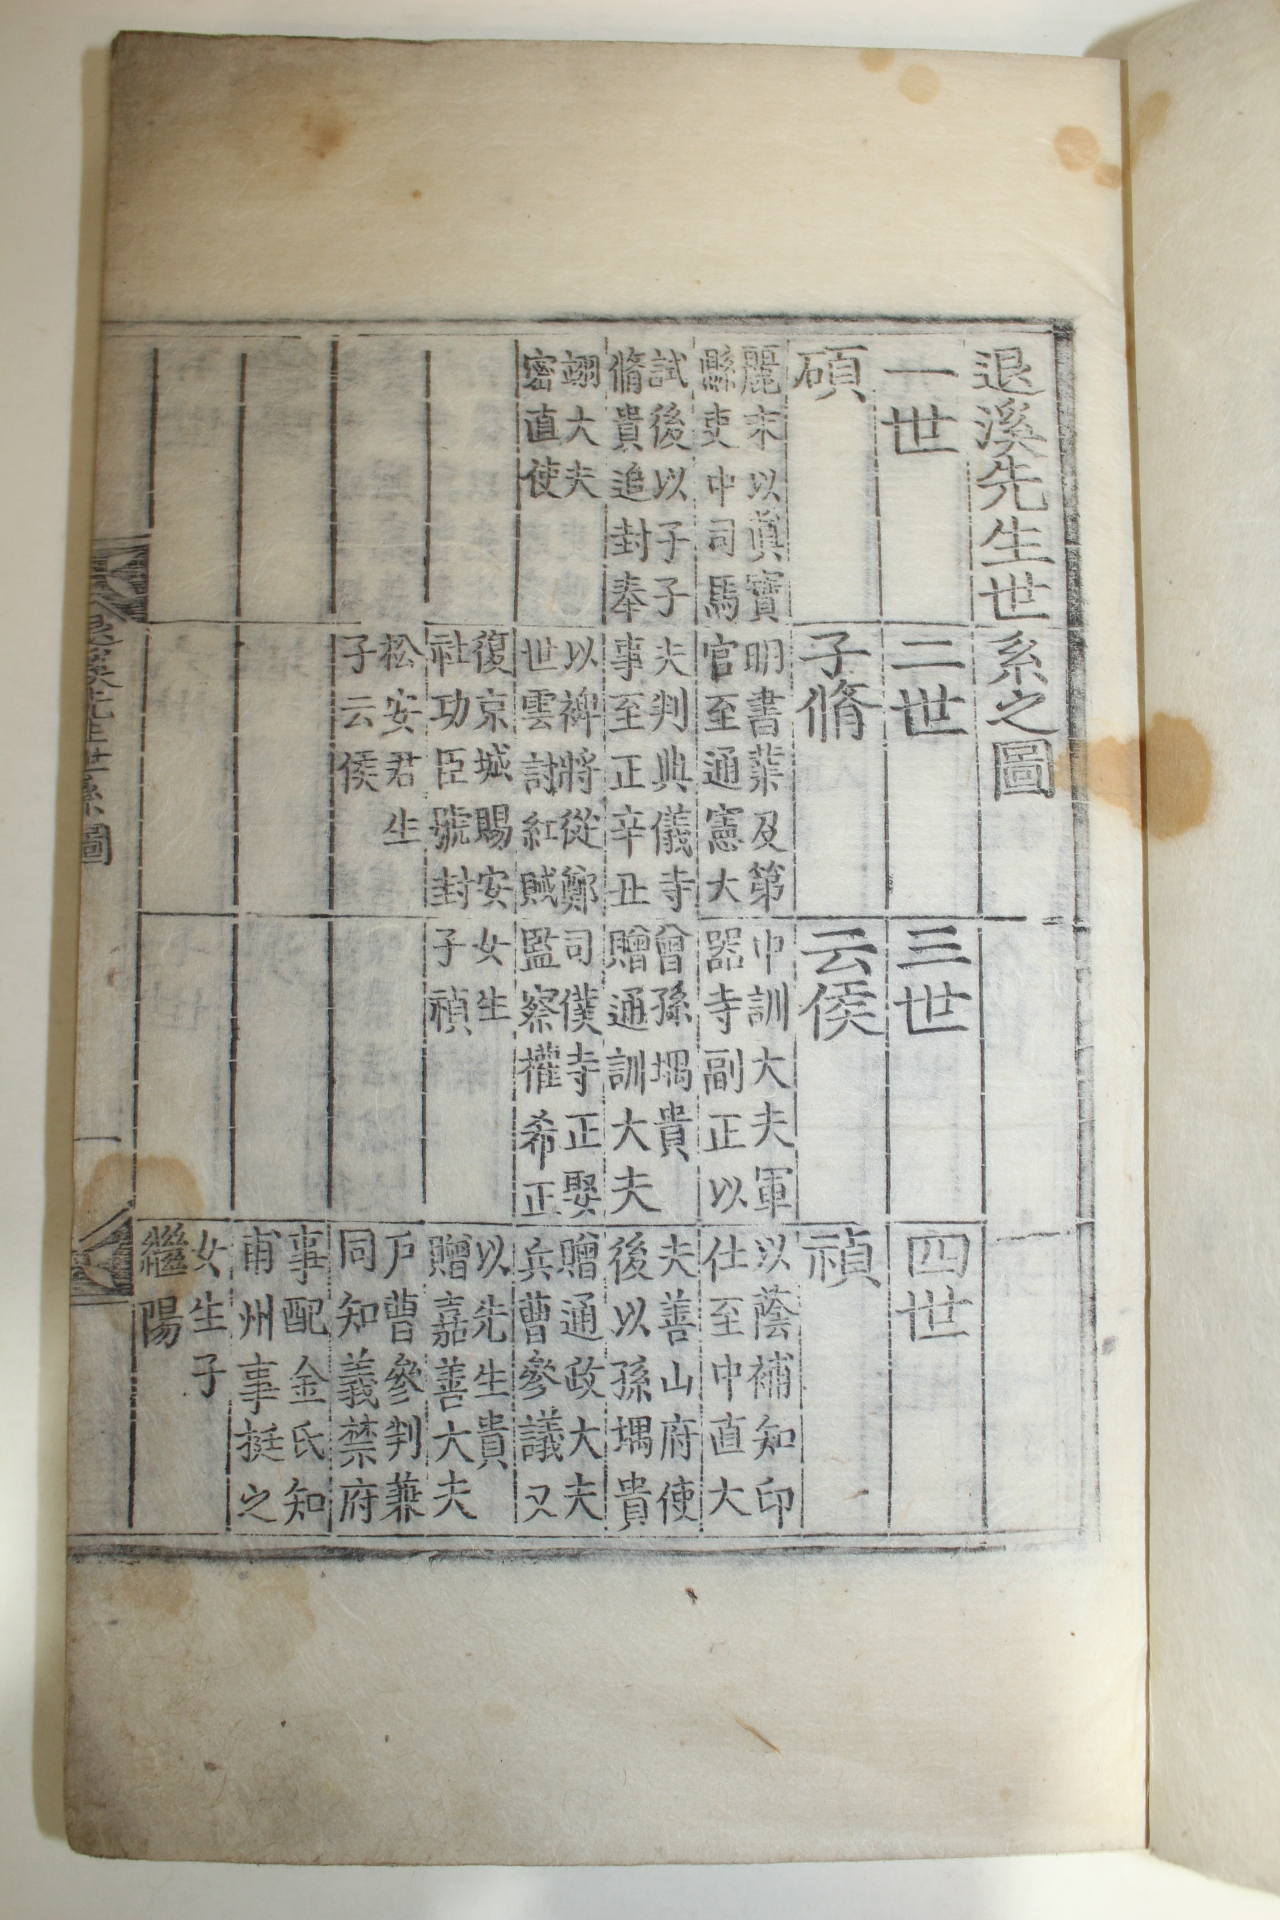 退溪先生世系之圖
一世
碩
麗末以眞寶
縣吏中司馬
試後以子子
脩貴追封奉
翊大夫
密直使
二世
子脩
明書業及第
官至通憲大
夫判典儀寺
事至正辛丑
以裨將從鄭
世雲討紅賊
復京城賜安
社功臣號封
松安君生
子云侯
三世
云侯
中訓大夫軍
器寺副正以
曾孫堣貴
贈通訓大夫
司僕寺正娶
監察權希正
女生
子禎
四世
禎
以蔭補知印
仕至中直大
夫善山府使
後以孫堣貴
贈通政大夫
兵曹參議又
以先生貴
贈嘉善大夫
戶曹參判兼
同知義禁府
事配金氏知
甫州事挺之
女生子
繼陽
退溪先生世系圖
一